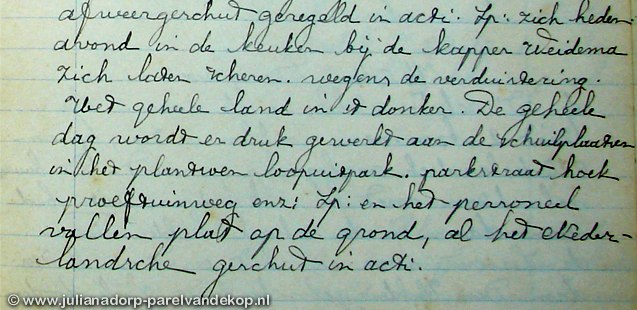 afweergeschut geregeld in acti. Zp: zich heden
avond in de keuken bij de kapper Weidema
zich laten scheren. wegens de verduistering.
Het geheele land in 't donker. De geheele
dag wordt er druk gewerkt aan de schuilplaatsen
in het plantwen loopuitpark. parkstraat hoek
proeftuinweg enz: Zp: en het personeel
vallen plat op de grond, al het Neder-
landsche geschut in acti.
© www.julianadorp-parelvandekop.nl